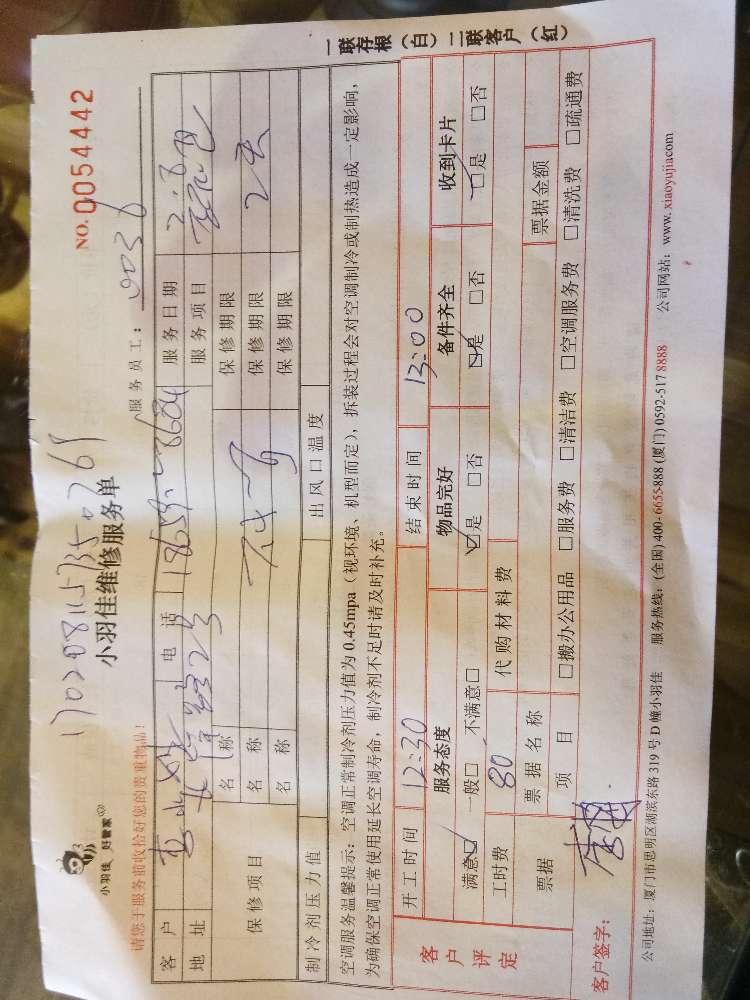 小羽佳 好管家
小羽佳维修服务单
NO.0054442
请您于服务前收拾好您的贵重物品！
服务员工：9036
客户 电话 服务日期 2.8
地址 服务项目
保修项目 名称 保修期限
名称 保修期限
名称 保修期限
制冷剂压力值 出风口温度
空调服务温馨提示：空调正常制冷剂压力值为0.45mpa（视环境、机型而定），拆装过程会对空调制冷或制热造成一定影响，
为确保空调正常使用延长空调寿命，制冷剂不足时请及时补充。
一联存根（白）二联客户（红）
客户评定
开工时间 12:30 结束时间 13:00
服务态度 物品完好 备件齐全 收到卡片
满意☑ 一般□ 不满意□ ☑是 □否 ☑是 □否 ☑是 □否
工时费 80 代购材料费
票据 票据名称 票据金额
项目 □搬办公用品 □服务费 □清洁费 □空调服务费 □清洗费 □疏通费
客户签字：
公司地址：厦门市思明区湖滨东路319号D幢小羽佳 服务热线：(全国)400-6655-888 (厦门)0592-5178888 公司网站：www.xiaoyujiacom